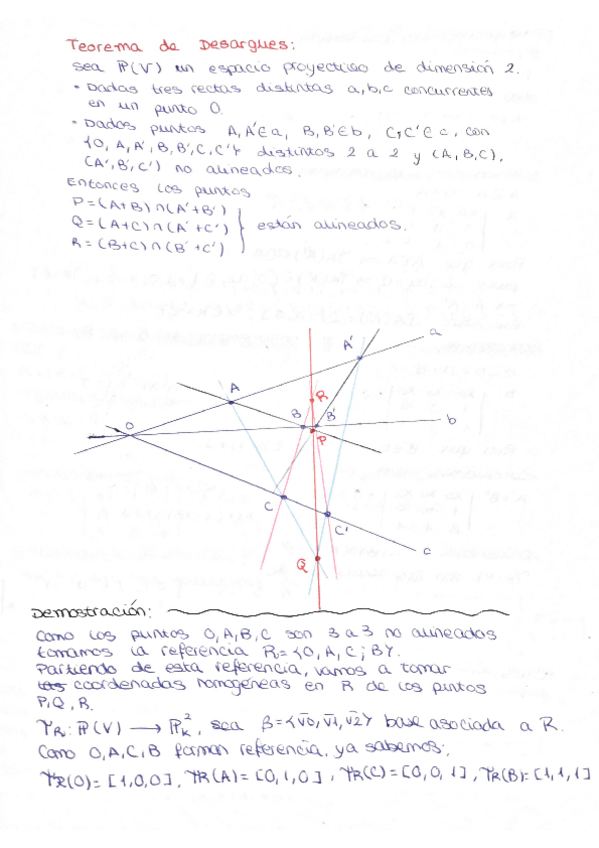 Teorema de Desargues:
Sea P(V) un espacio proyectivo de dimensión 2.
• Dadas tres rectas distintas a,b,c concurrentes
en un punto O.
• Dados puntos A,A'∈a, B,B'∈b, C,C'∈c, con
{O,A,A',B,B',C,C'} distintos 2 a 2 y (A,B,C),
(A',B',C') no alineados.
Entonces los puntos
P=(A+B)∩(A'+B')
Q=(A+C)∩(A'+C') están alineados.
R=(B+C)∩(B'+C')
A'
a
A
R
B
B'
b
O
P
C
C'
c
Q
Demostración:
Como los puntos O,A,B,C son 3 a 3 no alineados
tomamos la referencia R={O,A,C;B}.
Partiendo de esta referencia, vamos a tomar
coordenadas homogéneas en R de los puntos
P,Q,R.
ΥR: P(V) → P²k, sea β={v0,v1,v2} base asociada a R.
Como O,A,C,B forman referencia, ya sabemos:
ΥR(O)=[1,0,0], ΥR(A)=[0,1,0], ΥR(C)=[0,0,1], ΥR(B)=[1,1,1]